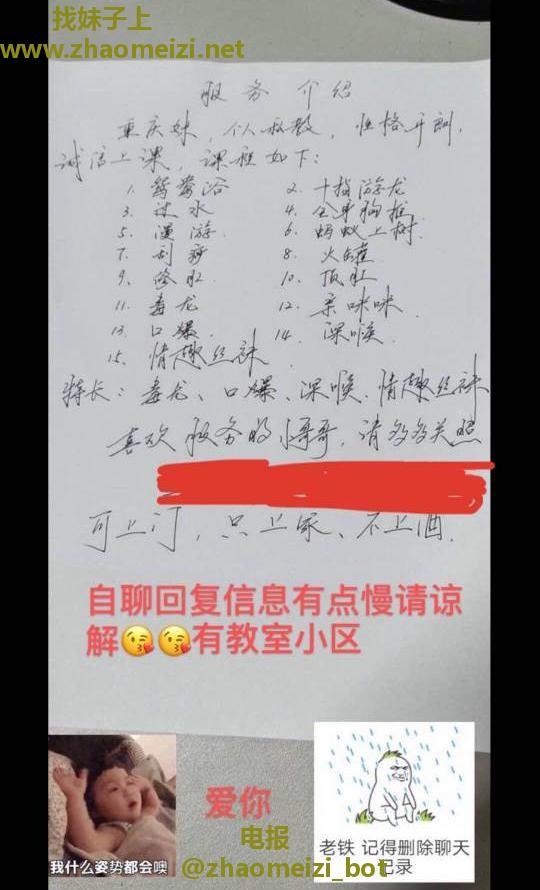 找妹子上
www.zhaomeizi.net
服务介绍
重庆妹，个人兼教，性格开朗，
诚信上课，课程如下：
1. 鸳鸯浴 2. 十指游龙
3. 过水 4. 全身胸推
5. 漫游 6. 蚂蚁上树
7. 刮痧 8. 火罐
9. 修肛 10. 顶肛
11. 毒龙 12. 亲咪咪
13. 口爆 14. 深喉
15. 情趣丝袜
特长：毒龙、口爆、深喉、情趣丝袜
喜欢服务的小哥哥，请多多关照
可上门，只上家、不上酒.
自聊回复信息有点慢请谅
解😘😘有教室小区
爱你
电报
@zhaomeizi_bot
我什么姿势都会噢
老铁 记得删除聊天
记录